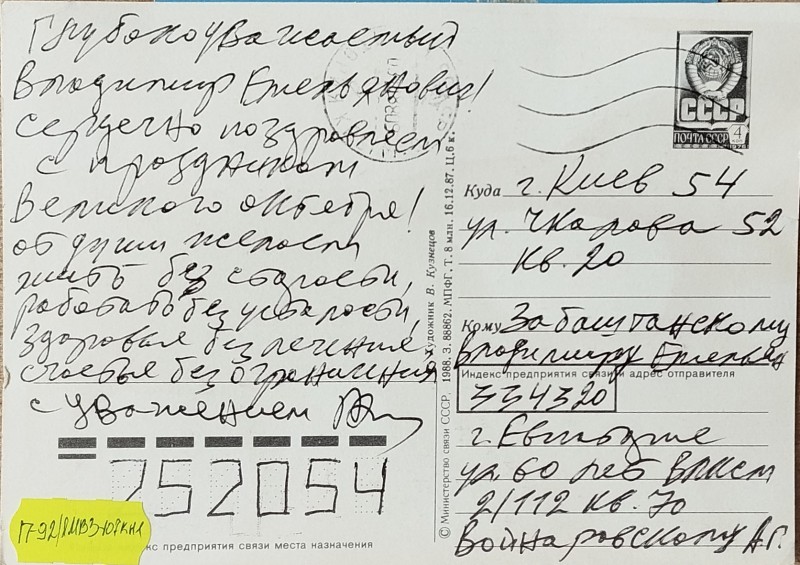 Глубокоуважаемый
Владимир Емельянович!
Сердечно поздравляем
с праздником
Великого Октября!
от души желаем
жить без старости,
работать без усталости,
здоровья без лечения,
счастья без ограничения
с уважением
СССР
ПОЧТА СССР 4
Куда г. Киев 54
ул. Чкалова 52
кв. 20
Кому Забаштанскому
Владимиру Емельян
Индекс предприятия связи и адрес отправителя
334320
г. Евпатория
ул. 60 лет ВЛКСМ
2/112 кв. 70
Войнаровскому А.Г.
© Министерство связи СССР, 1988. З. 88862. МПФГ. Т. 8 млн. 16.12.87. Ц. 6 к.
Художник В. Кузнецов
252054
екс предприятия связи места назначения